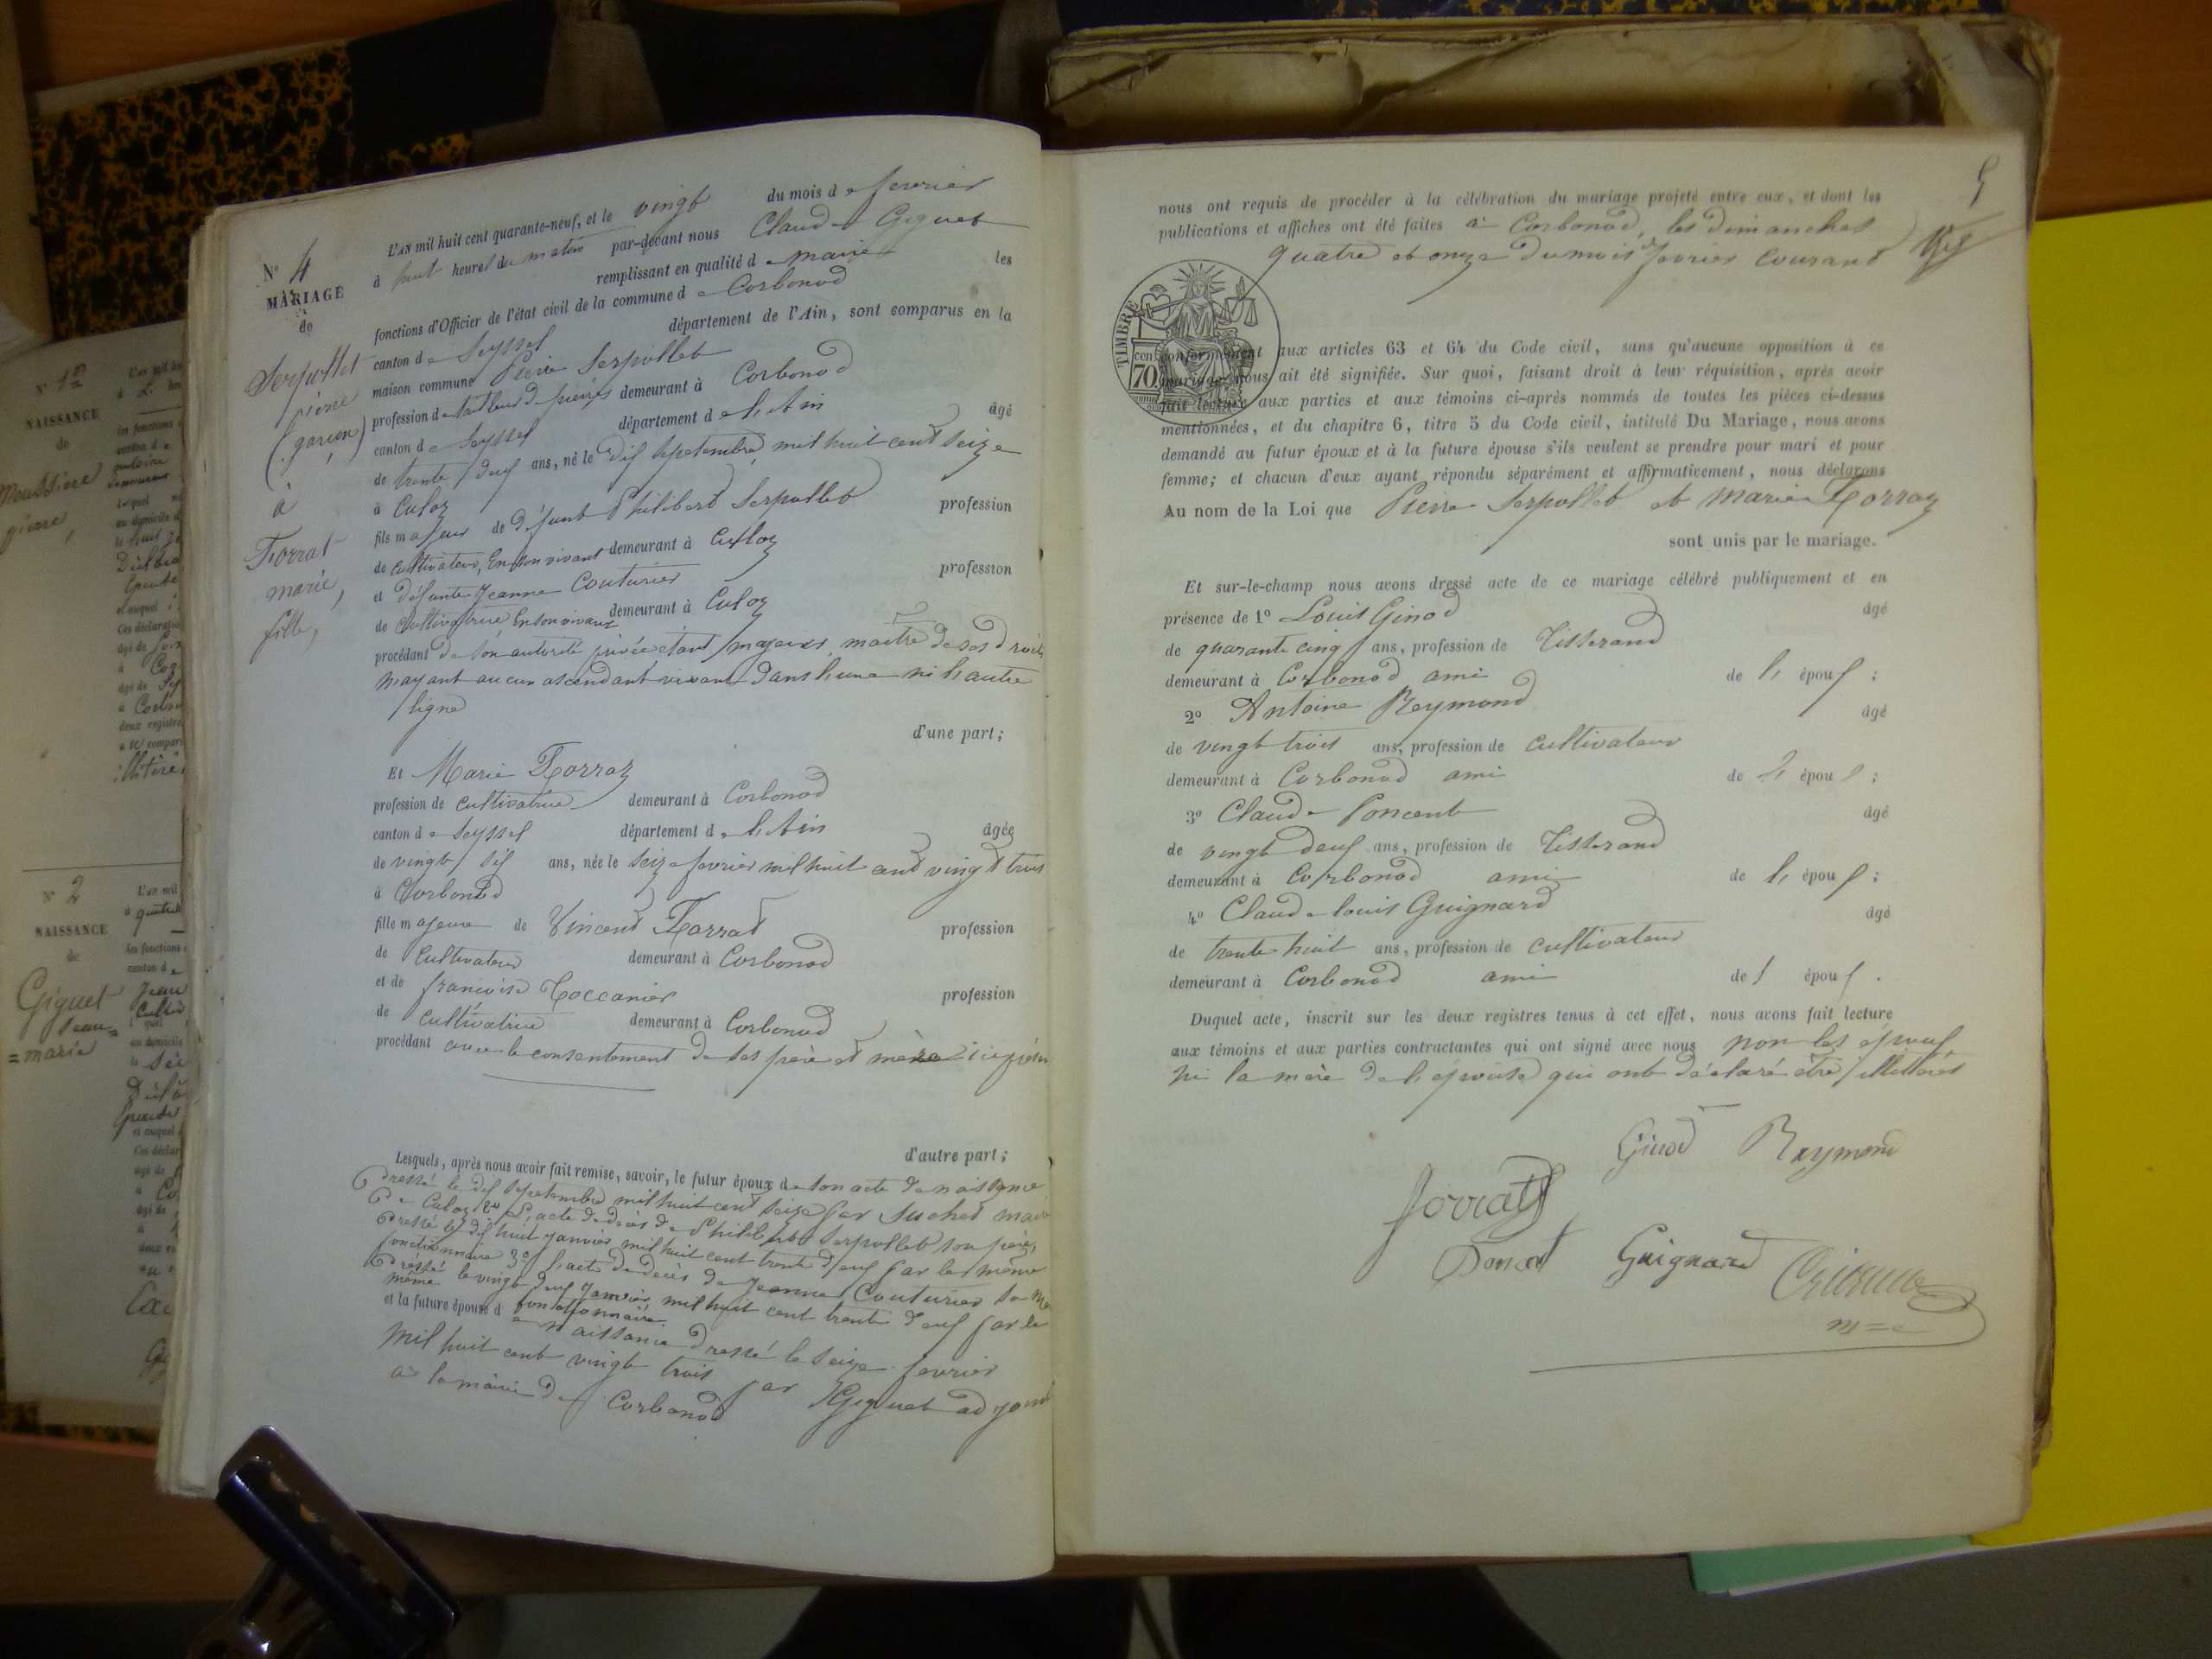 N° 4
MARIAGE
de
Serpollet
pierre
(garçon)
à
Forrat
marie,
fille,
L'AN mil huit cent quarante-neuf, et le vingt du mois de fevrier
à huit heures du matin par-devant nous Claude Giguet
remplissant en qualité de maire les
fonctions d'Officier de l'état civil de la commune de Corbonod
canton de Seyssel département de l'Ain, sont comparus en la
maison commune Pierre Serpollet
profession de tailleur de pierres demeurant à Corbonod
canton de Seyssel département de l'Ain âgé
de trente deux ans, né le dix septembre mil huit cent seize
à Culoz
fils majeur de défunt Philibert Serpollet profession
de cultivateur, En son vivant demeurant à Culoz
et défunte Jeanne Couturier profession
de Cultivatrice En son vivant demeurant à Culoz
procédant de son autorité privée étant majeur, maitre de ses droits
n'ayant aucun ascendant vivant dans l'une ni l'autre
ligne
d'une part;
Et Marie Forraz
profession de cultivatrice demeurant à Corbonod
canton de Seyssel département de l'Ain âgée
de vingt six ans, née le seize fevrier mil huit cent vingt trois
à Corbonod
fille majeure de Vincent Forrat profession
de Cultivateur demeurant à Corbonod
et de françoise Coccanier profession
de cultivatrice demeurant à Corbonod
procédant avec le consentement de ses père et mère ici
d'autre part;
Lesquels, après nous avoir fait remise, savoir, le futur époux de son acte de naissance
Dressé le dix septembre mil huit cent seize par Suchet maire
De Culoz 2° L'acte de décès de Philibert Serpollet son père,
Dressé le dix huit janvier mil huit cent trente deux par le même
fonctionnaire 3° l'acte de décès de Jeanne Couturier sa
Dressé le vingt deux janvier mil huit cent trente deux par le
même fonctionnaire
et la future épouse de naissance dressé le seize fevrier
mil huit cent vingt trois par Giguet adjoint
à la mairie de Corbonod
5
nous ont requis de procéder à la célébration du mariage projeté entre eux, et dont les
publications et affiches ont été faites à Corbonod, les dimanches
quatre et onze du mois de fevrier courant
TIMBRE
70 cent
conformément aux articles 63 et 64 du Code civil, sans qu'aucune opposition à ce
mariage nous ait été signifiée. Sur quoi, faisant droit à leur réquisition, après avoir
fait lecture aux parties et aux témoins ci-après nommés de toutes les pièces ci-dessus
mentionnées, et du chapitre 6, titre 5 du Code civil, intitulé Du Mariage, nous avons
demandé au futur époux et à la future épouse s'ils veulent se prendre pour mari et pour
femme; et chacun d'eux ayant répondu séparément et affirmativement, nous déclarons
Au nom de la Loi que Pierre Serpollet et Marie Forraz
sont unis par le mariage.
Et sur-le-champ nous avons dressé acte de ce mariage célébré publiquement et en
présence de 1° Louis Ginod âgé
de quarante cinq ans, profession de Tisserand
demeurant à Corbonod ami de l'époux;
2° Antoine Reymond âgé
de vingt trois ans, profession de cultivateur
demeurant à Corbonod ami de l'époux;
3° Claude Poncent âgé
de vingt deux ans, profession de Tisserand
demeurant à Corbonod ami de l'époux;
4° Claude louis Guignard âgé
de trente huit ans, profession de cultivateur
demeurant à Corbonod ami de l'époux.
Duquel acte, inscrit sur les deux registres tenus à cet effet, nous avons fait lecture
aux témoins et aux parties contractantes qui ont signé avec nous non les époux,
ni la mère de l'épouse qui ont déclaré être illettrés
Ginod Reymond
forrat
Guignard
N° 2
NAISSANCE
de
Giguet
Jean=
=marie